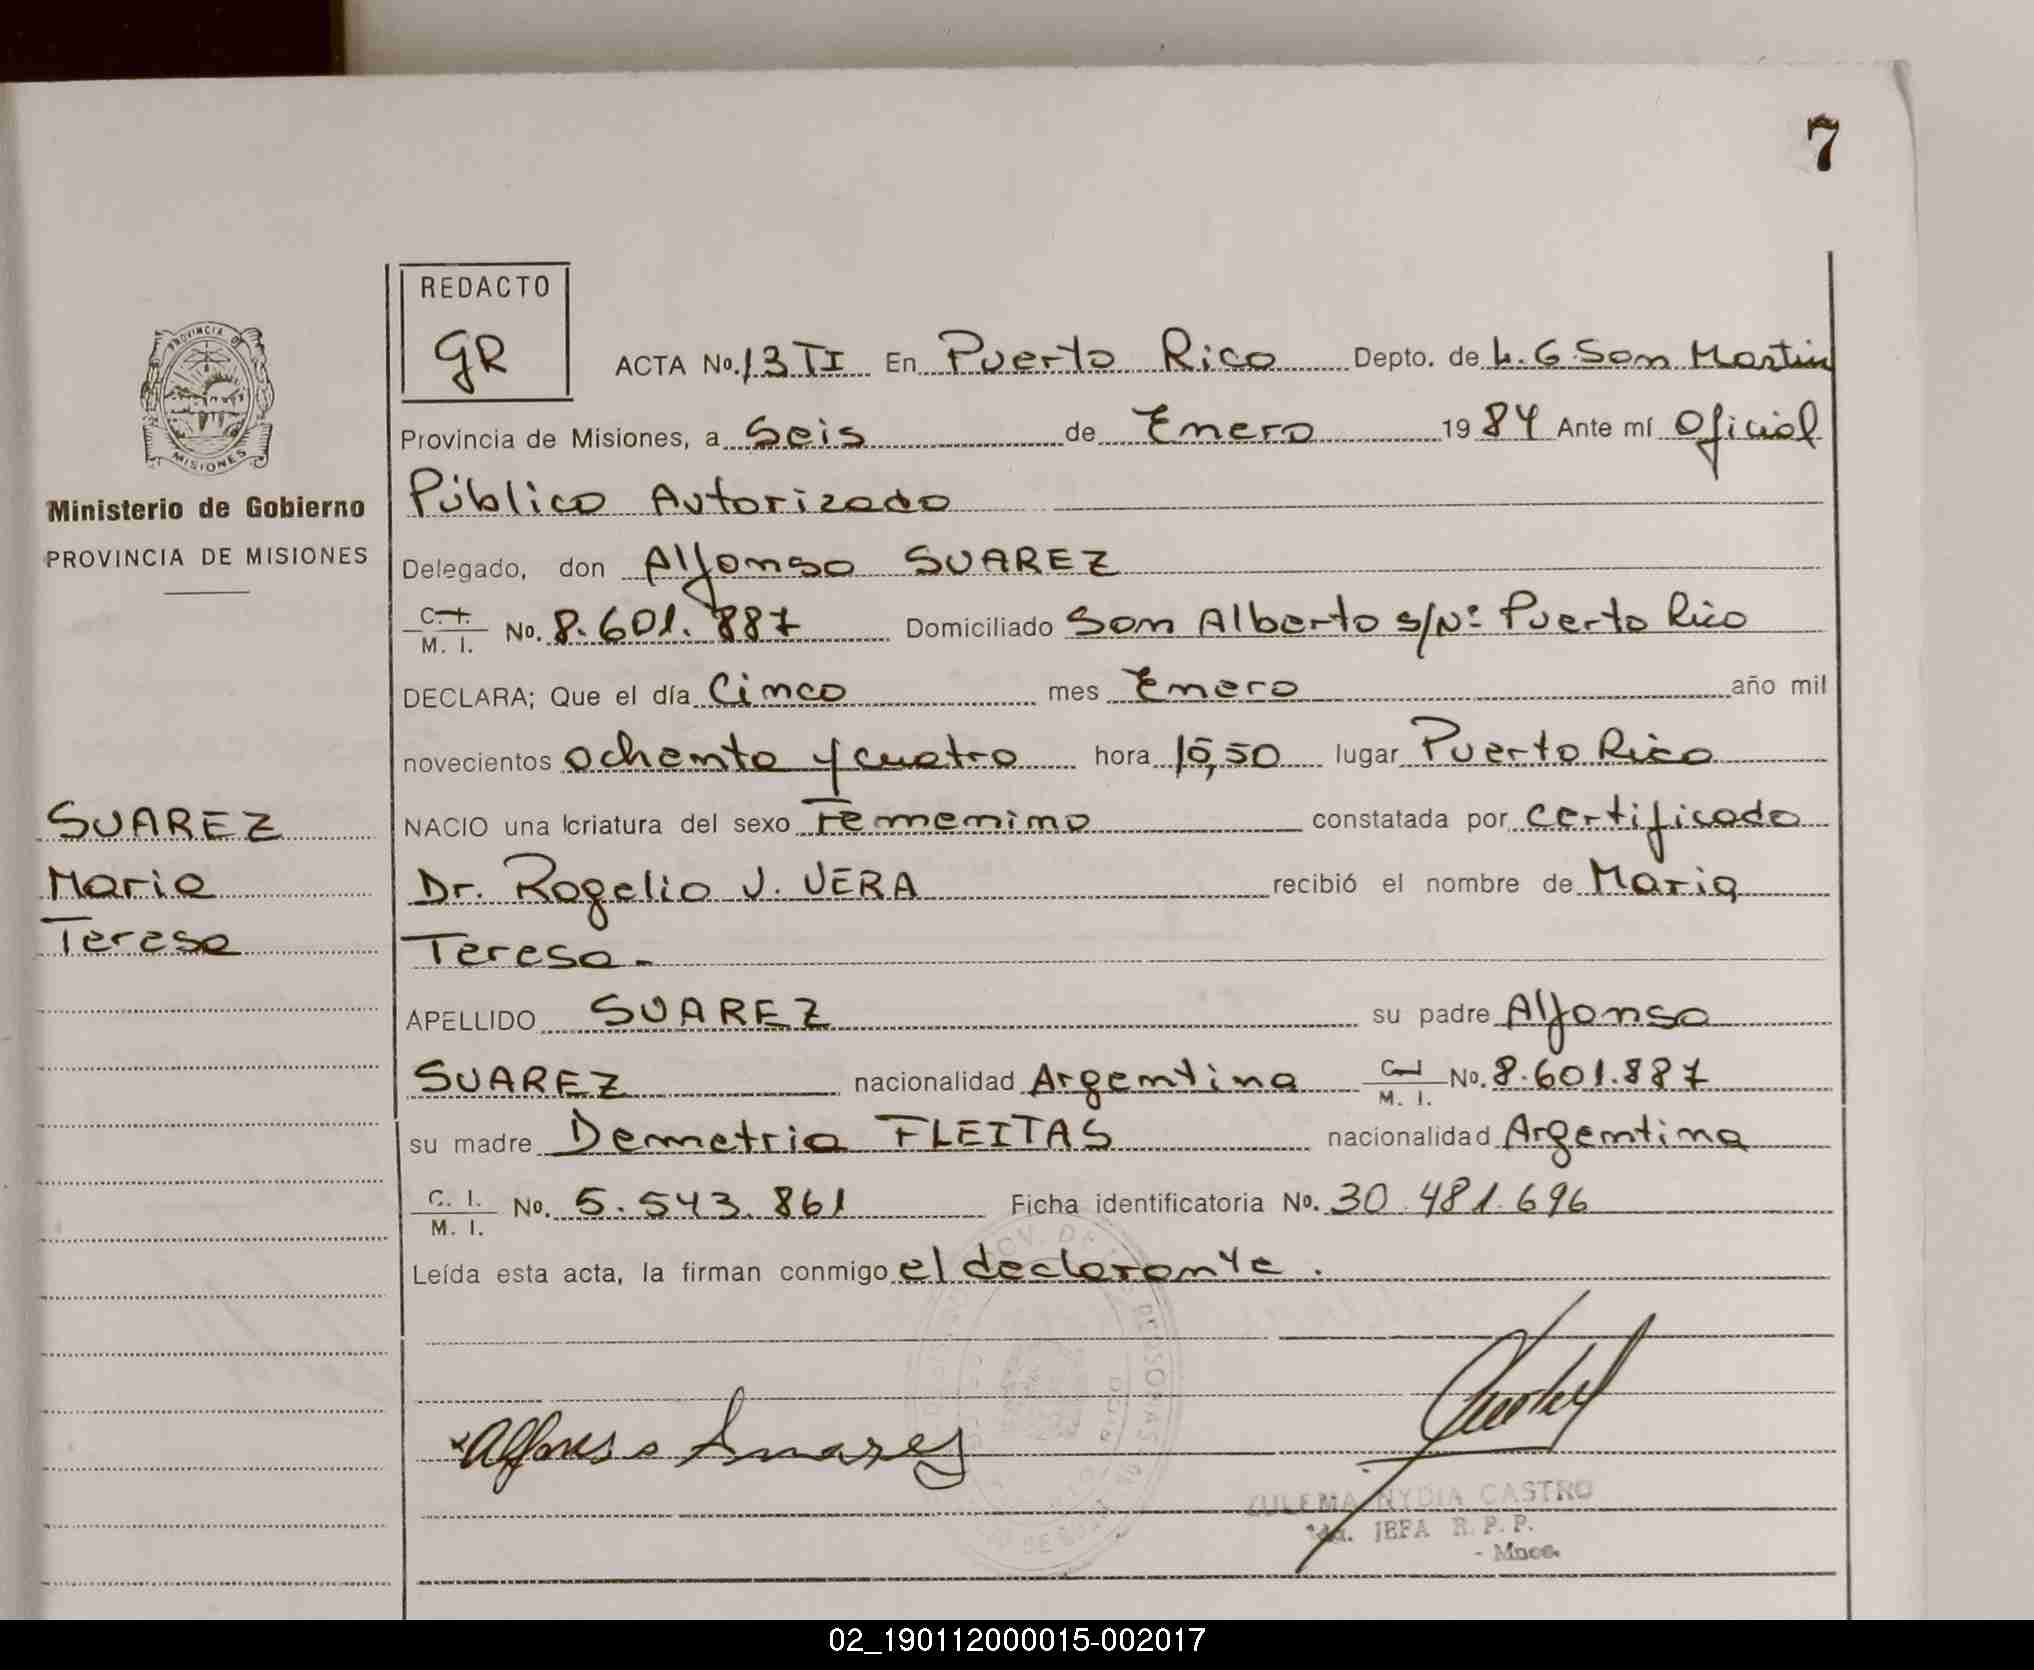 7
REDACTO
GR
ACTA No. 13 TI En Puerto Rico Depto. de L. G. San Martin
Provincia de Misiones, a Seis de Enero 1984 Ante mí Oficial
Público Autorizado
Delegado, don Alfonso SUAREZ
C. I. M. I. No. 8.601.887 Domiciliado San Alberto s/Nº Puerto Rico
DECLARA; Que el día Cinco mes Enero año mil
novecientos ochenta y cuatro hora 15,50 lugar Puerto Rico
NACIO una criatura del sexo Femenino constatada por certificado
Dr. Rogelio J. VERA recibió el nombre de Maria
Teresa.-
APELLIDO SUAREZ su padre Alfonso
SUAREZ nacionalidad Argentina C. I. M. I. No. 8.601.887
su madre Demetria FLEITAS nacionalidad Argentina
C. I. M. I. No. 5.543.861 Ficha identificatoria No. 30.481.696
Leída esta acta, la firman conmigo el declarante.
Alfonso Suarez
ZULEMA NYDIA CASTRO
JEFA R. P. P.
- Mnes.
PROVINCIA
MISIONES
Ministerio de Gobierno
PROVINCIA DE MISIONES
SUAREZ
Maria
Teresa
02_190112000015-002017